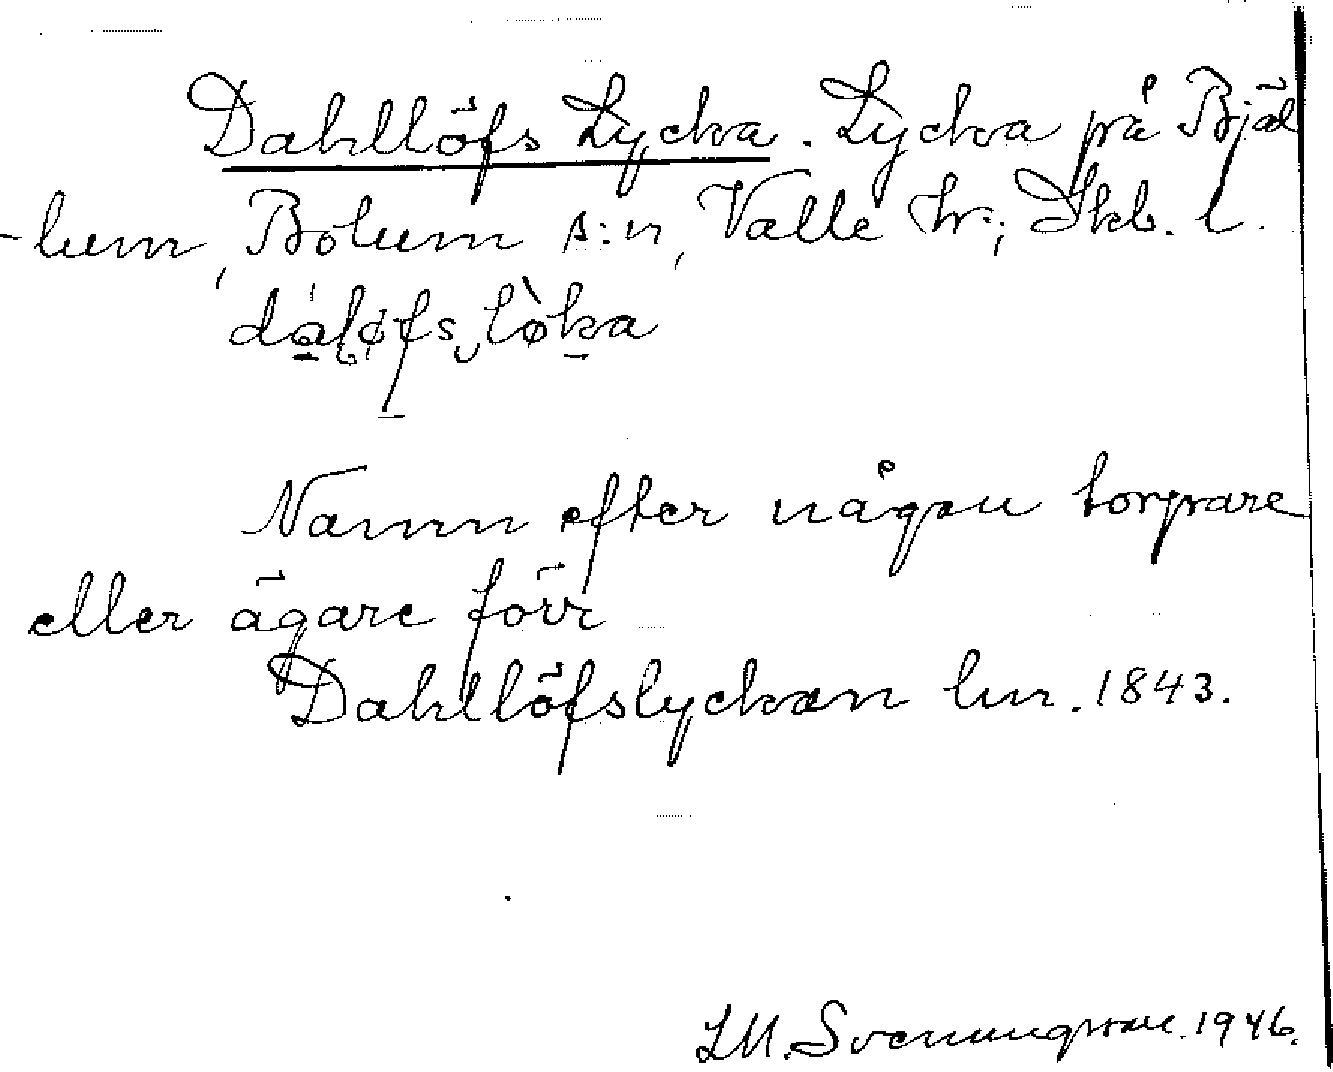 Dahllöfs Lycka. Lycka på Bjäl
-lum, Bolum s:n, Valle hr; Skb. l.
dáləfs lò̤ka
Namn efter någon torpare
eller ägare förr
Dahllöfslyckan lm. 1843.
S.M. Svenungsson. 1946.